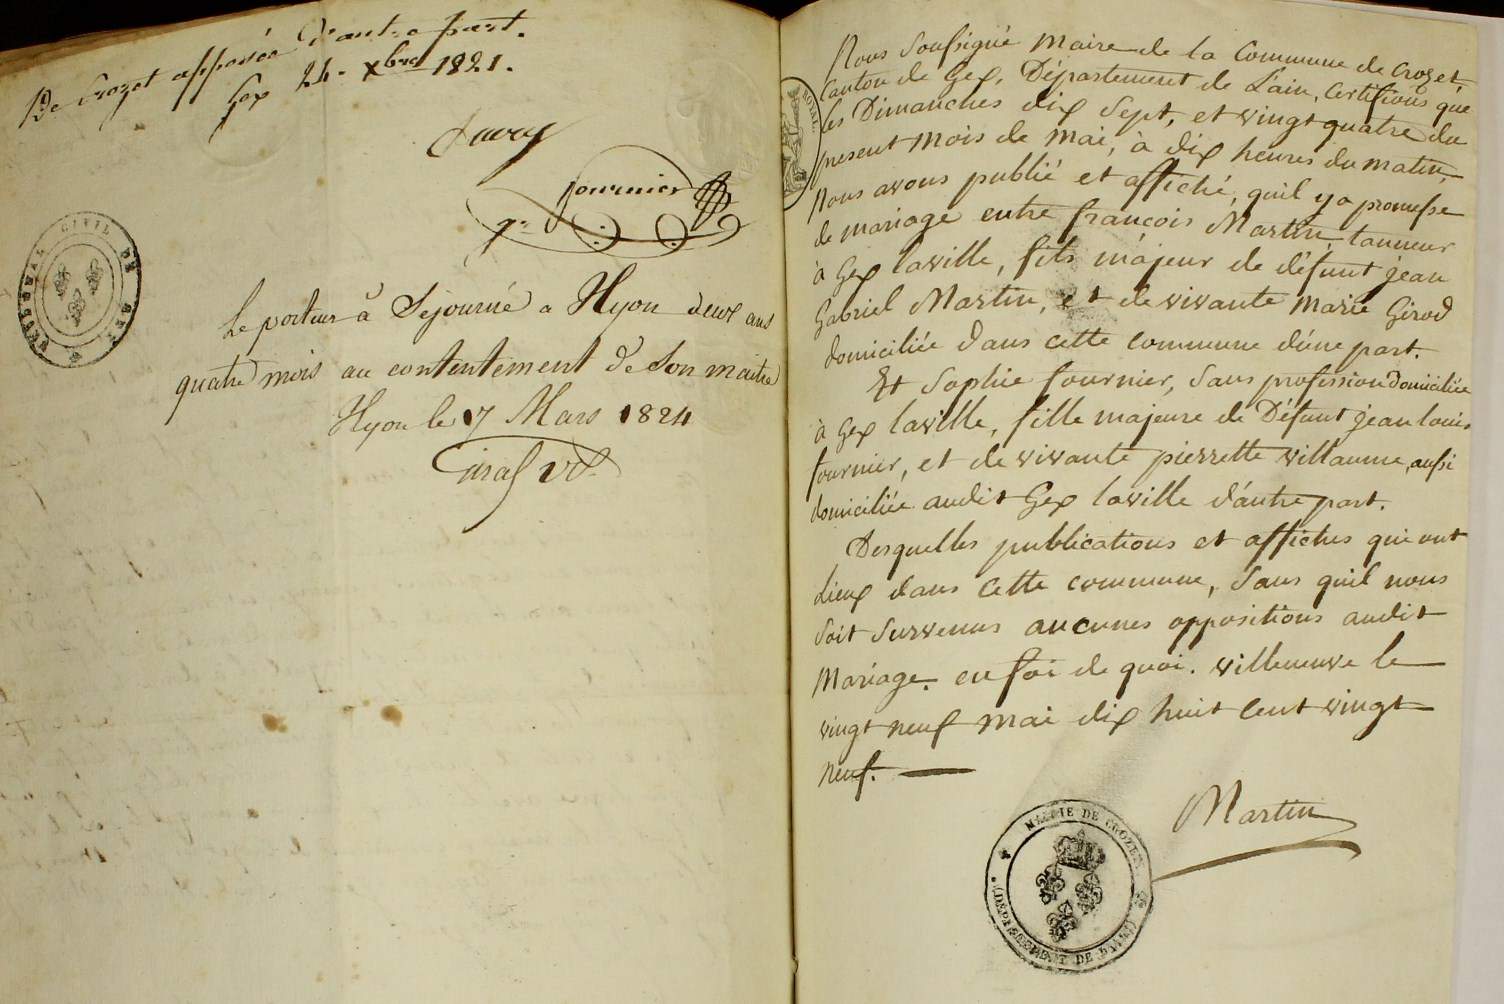 De Crozet apposée d'autre part.
Gex 24. Xbre 1821.
fournier
gr
TRIBUNAL CIVIL DE GEX
Le porteur à Sejourné a Nyon deux ans
quatre mois au contentement de Son maitre
Nyon le 7 Mars 1824
ROYAL
Nous Soussigné Maire de la Commune de Crozet,
Canton de Gex, Département de L'ain, Certifions que
les Dimanches dix Sept, et vingt quatre du
present mois de Mai, à dix heures du matin,
Nous avons publié et affiché, quil y a promesse
de mariage entre françois Martin, tanneur
à Gex laville, fils majeur de défunt jean
Gabriel Martin, et de vivante Marie Girod
domiciliée dans cette commune d'une part.
Et Sophie fournier, Sans profession domiciliée
à Gex laville, fille majeure de Défunt jean louis
fournier, et de vivante pierrette villaume, aussi
domiciliée audit Gex laville d'autre part.
Desquelles publications et affiches qui ont
Lieux dans cette commune, Sans quil nous
Soit Survenus aucunes oppositions audit
Mariage. en foi de quoi. villeneuve le
vingt neuf mai dix huit Cent vingt
Neuf.
Martin
MAIRIE DE CROZET
(DÉPARTEMENT DE L'AIN)